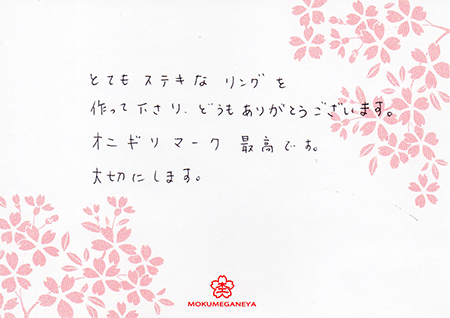 とてもステキな リングを
作って下さり、どうもありがとうございます。
オニギリマーク 最高です。
大切にします。
MOKUMEGANEYA